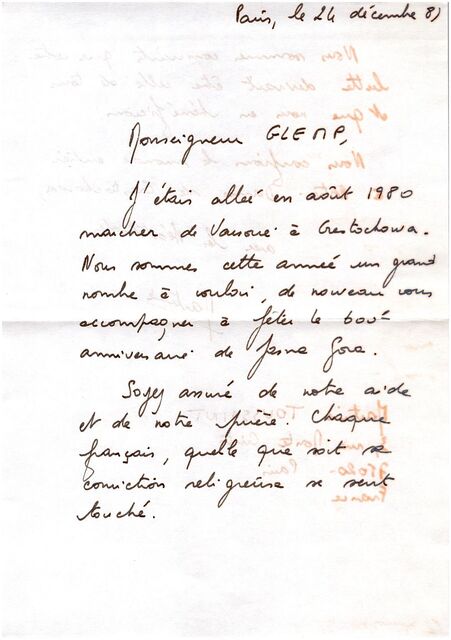 Paris, le 24 décembre 81
Monseigneur GLEMP,
J'étais allée en août 1980
marcher de Varsovie à Crestochowa.
Nous sommes cette année un grand
nombre à vouloir, de nouveau vous
accompagner à fêter le 600è
anniversaire de Jasna Gora.
Soyez assuré de notre aide
et de notre prière. Chaque
français, quelle que soit sa
conviction religieuse se sent
touché.